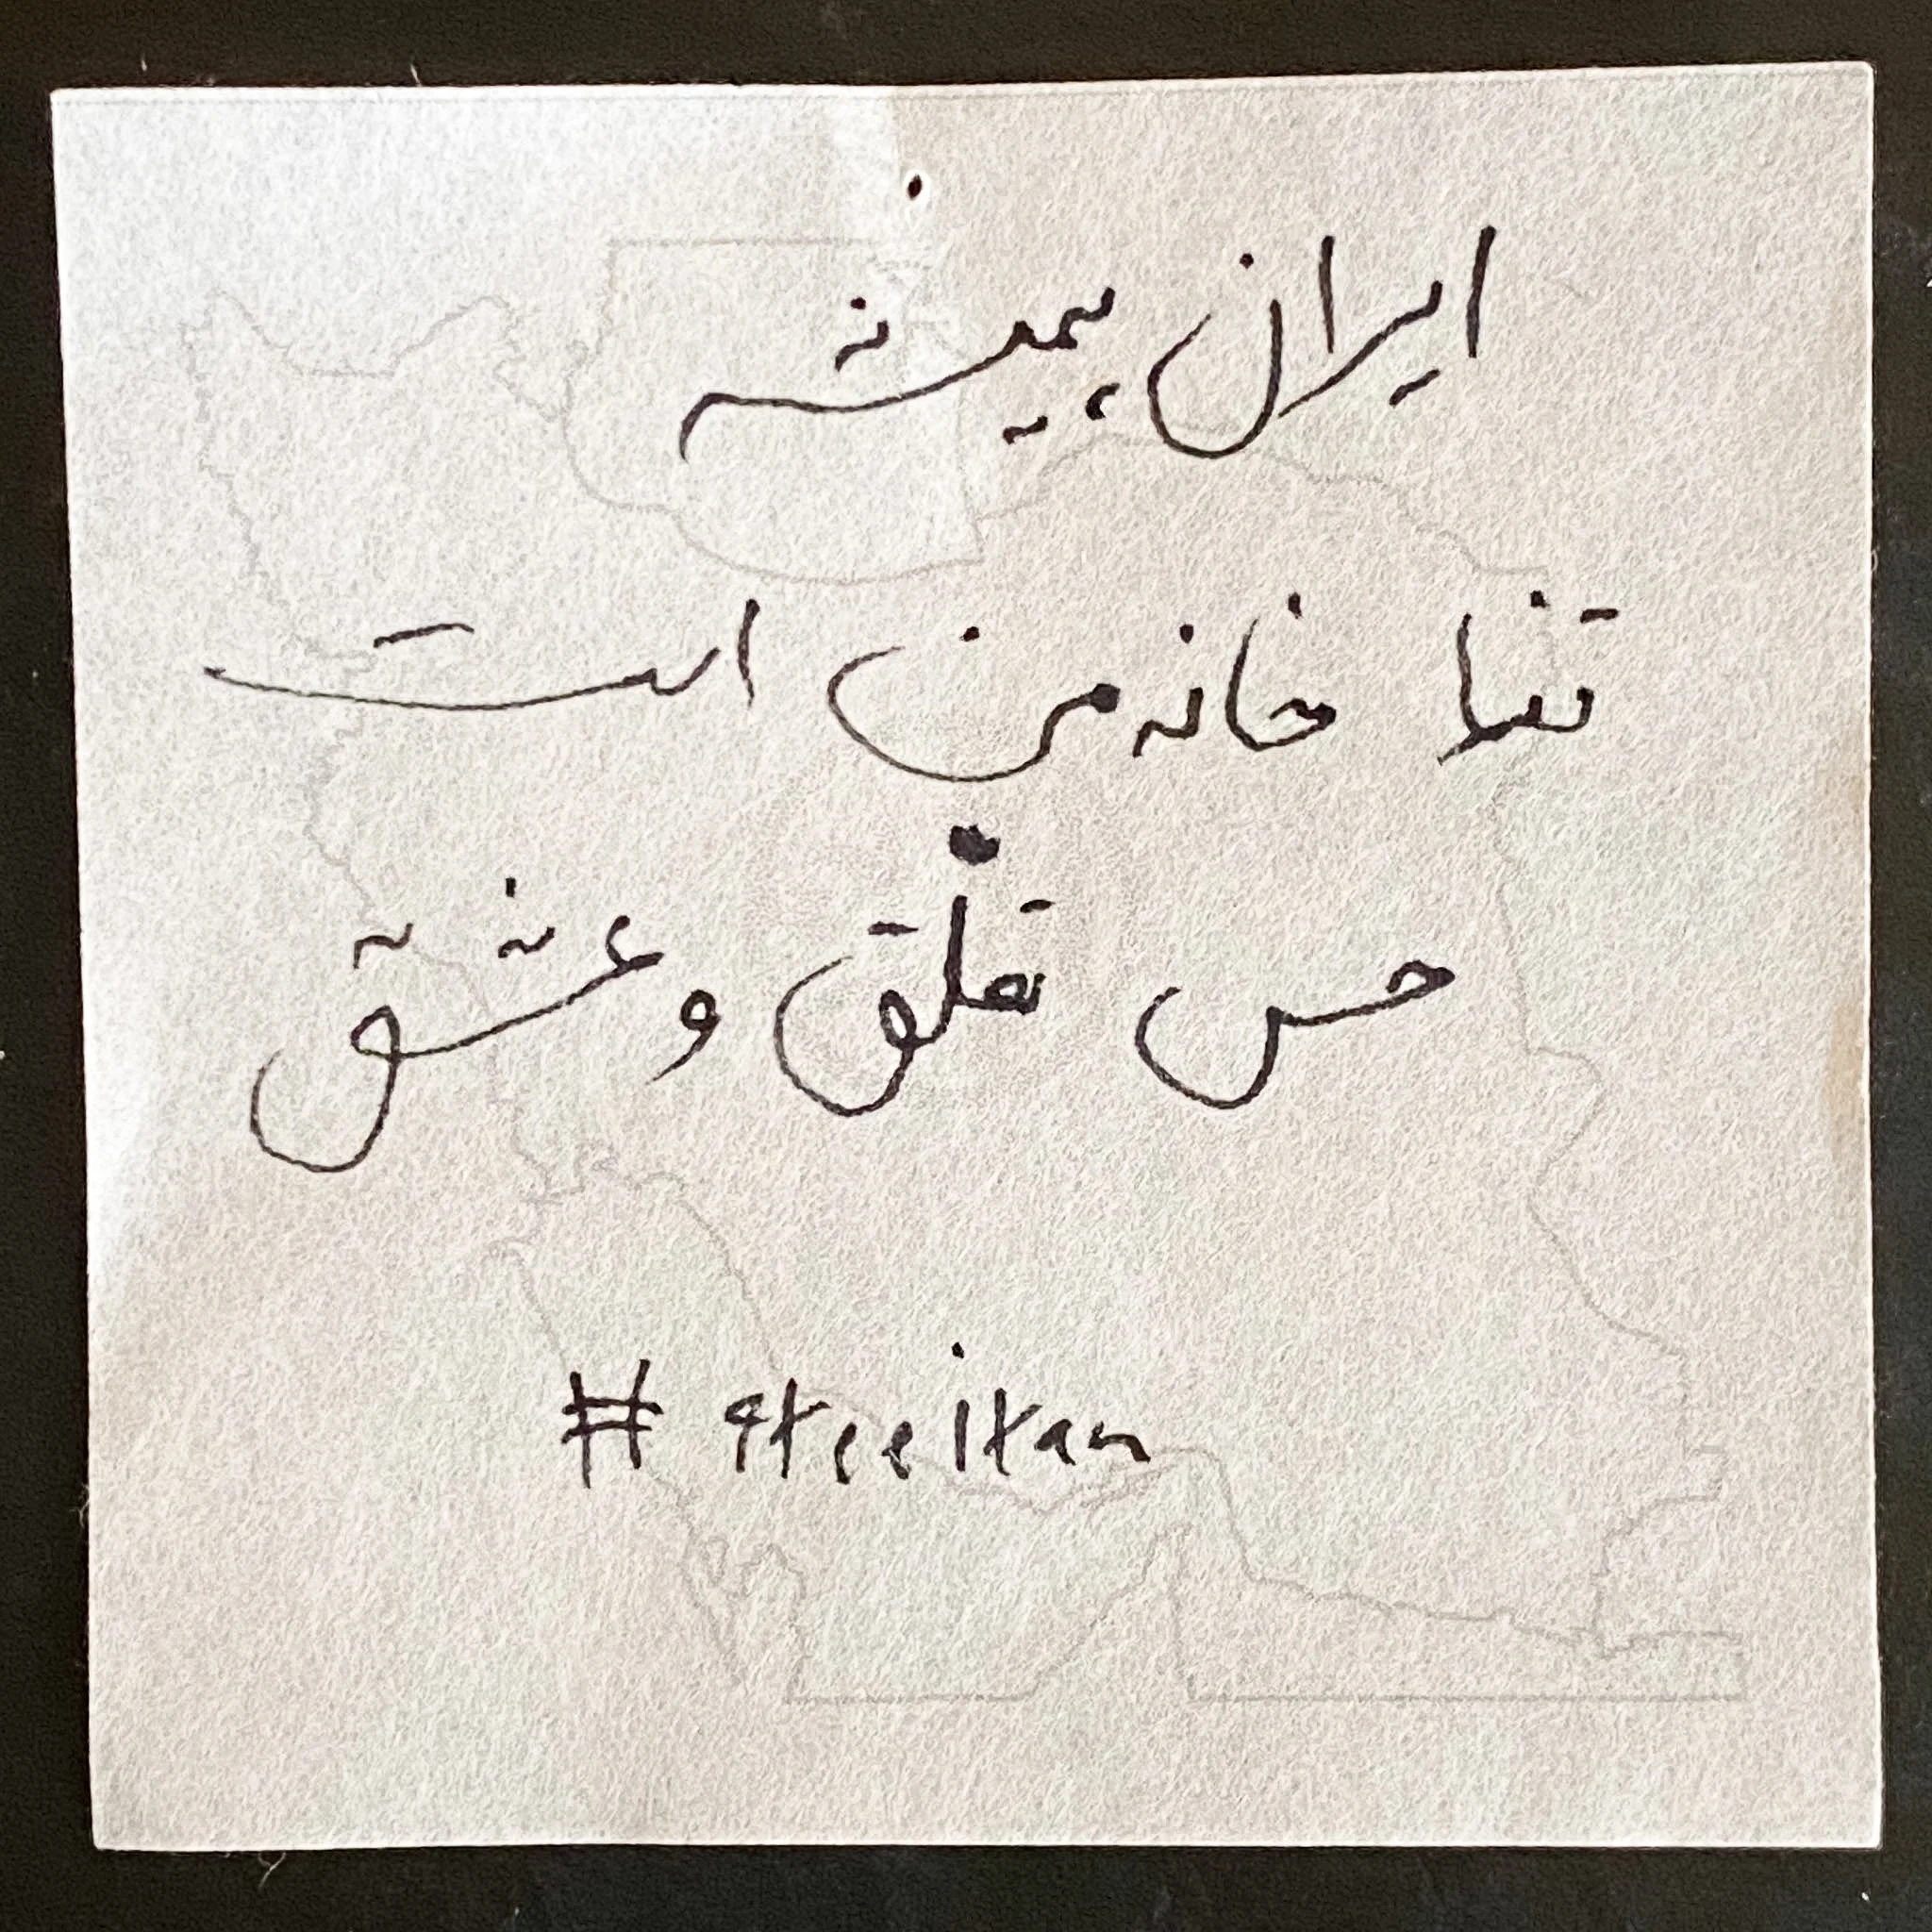 ایران همیشه
تنها خانه من است
حس تعلق و عشق
# 4treeitan